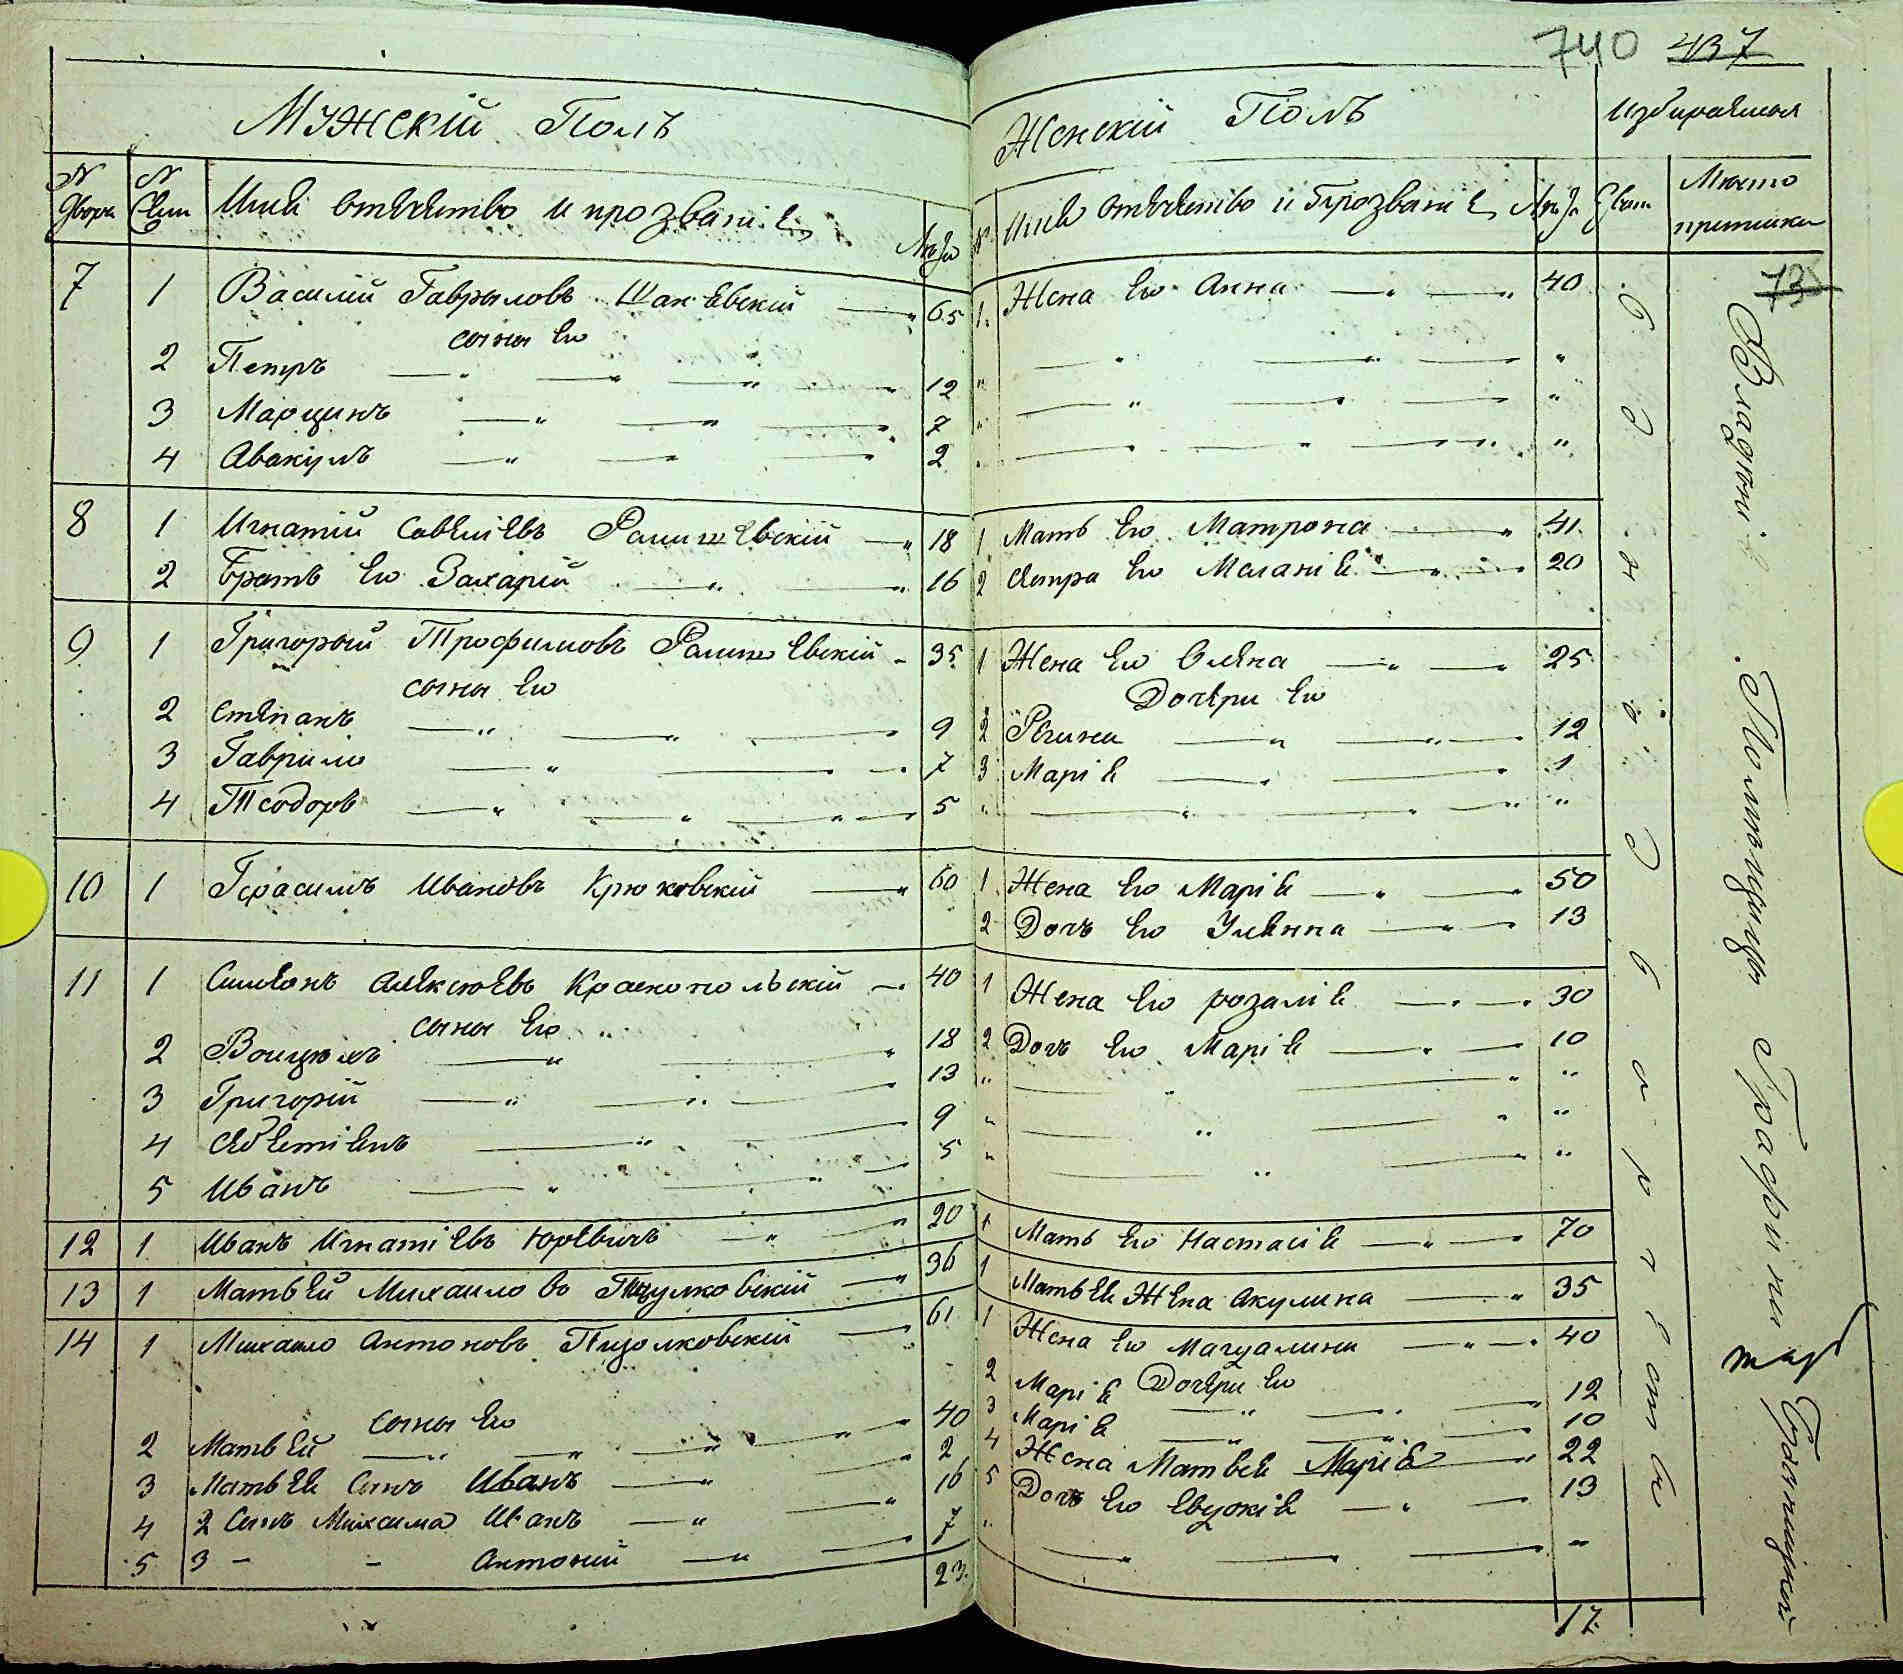 740 437
Мужскій Полъ
№ двора № Сем Имя отечество и прозваніе Лѣта
7 1 Василий Гаврыловъ Шан евскій — " 65
сыны Его
2 Петръ — " — " — " — " 12
3 Марцинъ — " — " — " 7
4 Авакумъ — " — " — " 2
8 1 Игнатій Савеліевъ Ромишевскій — " 18
2 Братъ Его Захарій — " — " 16
9 1 Григорый Трофимовъ Ромишевскій - 35
сыны Его
2 Степанъ — " — " — " 9
3 Гаврило — " — " — " 7
4 Теодоръ — " — " — " 5
10 1 Герасимъ Ивановъ Крюковскій — " 60
11 1 Симеонъ Алексюевъ Краснопольскій — " 40
сыны Его
2 Войцюхъ — " — " 18
3 Григорій — " — " — " 13
4 — " — " 9
5 Иванъ — " — " — " 5
12 1 Иванъ Игнатіевъ Юревичъ — " — " 20
13 1 Матвей Михаилово — " 36
14 1 Михаило Антоновъ Пщолковскій — " 61
сыны Его
2 Матвей — " — " — " — " 40
3 Матвея Сынъ Иванъ — " — " 2
4 2 Сынъ Михаила Иванъ — " — " 16
5 3 - - Антоній — " — " 7
23.
Женскій Полъ
№ Имя отечество и Прозваніе Лѣта
1. Жена Его Анна — " — " 40
1. Мать Его Матрона — " 41
2 Сестра Его Меланія — " — " 20
1 Жена Его Олена — " — " 25
Дочери Его
2 Регина — " — " — " 12
3 Марія — " — " 1
1. Жена Его Марія — " — " 50
2 Дочъ Его Улянна — " — " 13
1 Жена Его розалія — " — " 30
2 Дочъ Его Марія — " — " 10
1 Мать Его Настасія — " — " 70
1 Матвея Жена Акулина — " 35
1 Жена Его Магдалина — " — " 40
Дочери Его
2 Марія — " — " — " 12
3 Марія — " — " — " 10
4 Жена Матвея Марія — " 22
5 Дочъ Его Евдокія — " — 13
17.
Избираемыя
Мѣсто приписки
73
Владѣнія Помѣщицы Графини Браницкой